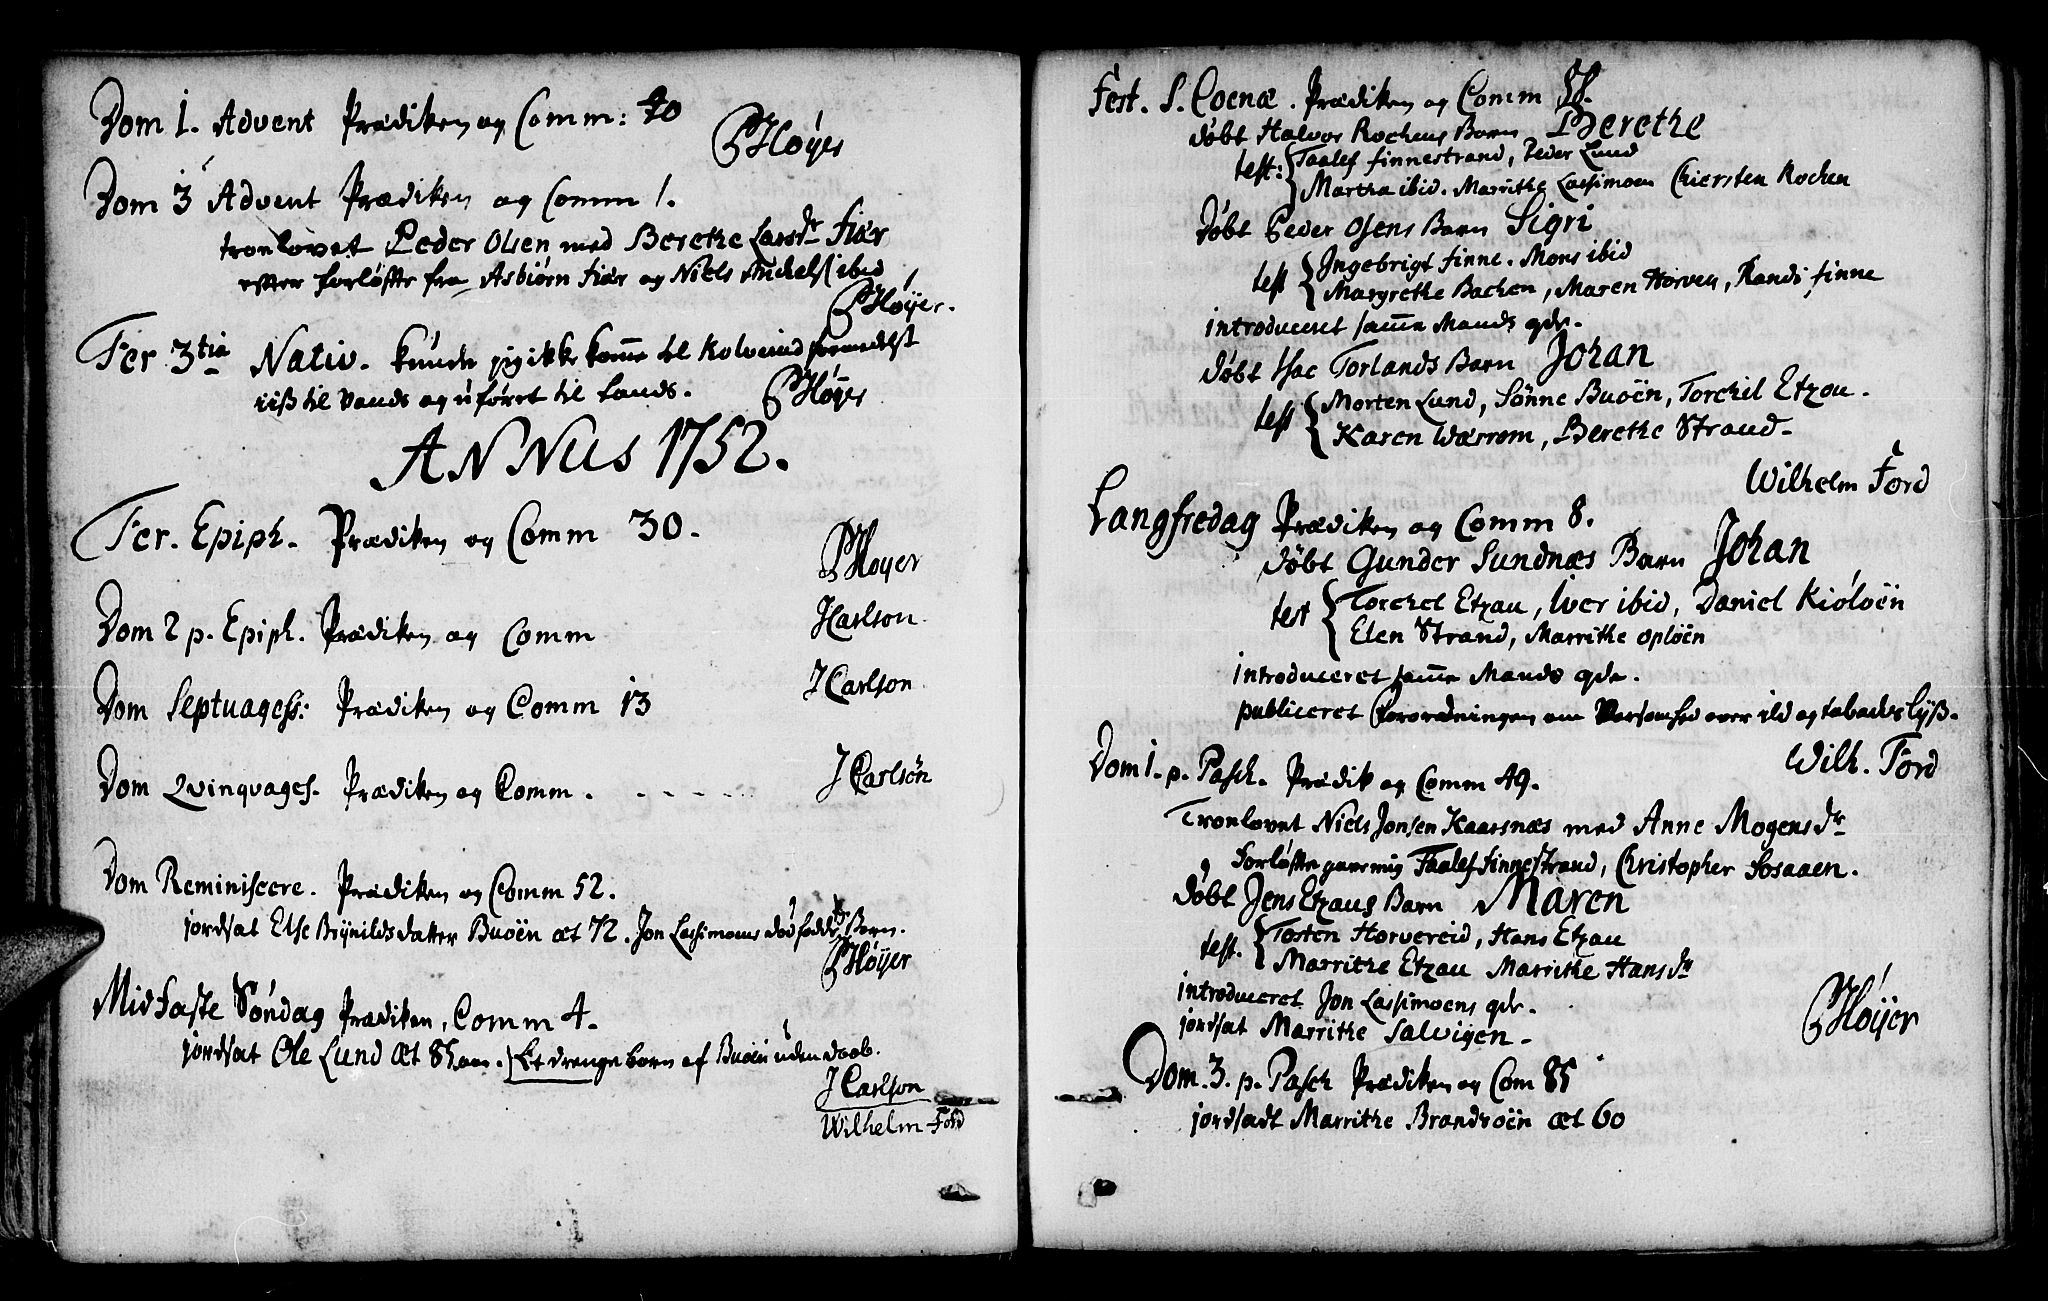 Dom 1. Advent Prædiken og Comm: 40
PHøyer
Dom 3 Advent Prædiken og Comm 1.
troelovet Peder Olsen med Berethe Larsdr Fiær
efter forløfte fra Asbiørn Fiær og Niels Michels ibid
PHøyer.
Fer 3tia Nativ. kunde jeg ikke komme til Kolvereid formedelst
iis til Vands og uføret til Lands.
PHøyer
ANNUS 1752.
Fer. Epiph. Prædiken og Comm 30.
PHøyer
Dom 2 p. Epiph. Prædiken og Comm
JCarlson
Dom Septuagess: Prædiken og Comm 13
JCarlson
Dom Qvinqvages. Prædiken og Comm.
JCarlsøn
Dom Reminiscere. Prædiken og Comm 52.
jordsat Else Brynildsdatter Buøen æt 72. Jon Lassimoens dødfødde Barn.
PHøyer
Midfaste Søndag Prædiken, Comm 4.
jordsat Ole Lund æt 85 aar. Et drengebarn af Buøen uden daab.
JCarlson
Wilhelm Ford
Fest. S. Coenæ. Prædiken og Comm 58.
døbt Halvor Rochens Barn Berethe
test: Taalef Finnestrand, Peder Lund
Martha ibid. Marrithe Lassimoen Chiersten Rochen
Døbt Peder Olsens Barn Sigri
test Ingebrigt Finne. Mons ibid
Margrethe Bachen, Maren Horven, Randi Finne
introduceret samme Mands qde.
døbt Isac Torlands Barn Johan
test Morten Lund, Sønne Buøen, Torchil Etzau.
Karen Wærrom, Berethe Strand.
Wilhelm Ford
Langfredag Prædiken og Comm 8.
døbt Gunder Sundnæs Barn Johan
test Torchel Etzau, Iver ibid, Daniel Kiøløen
Elen Strand, Marrithe opløen
introduceret samme Mands qde.
publiceret Forordningen om Varsomhed over ild og tobacks lyss.
Wilh. Ford
Dom 1. p. Pasch. Prædik og Comm 49.
Troelovet Niels Jonsen Kaarsnæs med Anne Mogensdr
Forløfte gave mig Taalef Finnestrand, Christopher Fosaaen.
døbt Jens Etzaus Barn Maren
test. Tosten Horvereid, Hans Etzau
Marrithe Etzau Marrithe Hansdr
introduceret Jon Lassimoens qde.
jordsat Marrithe Salvigen.
PHøyer
Dom. 3. p. Pasch Prædiken og Com 85
jordsadt Marrithe Brandsøen æt 60